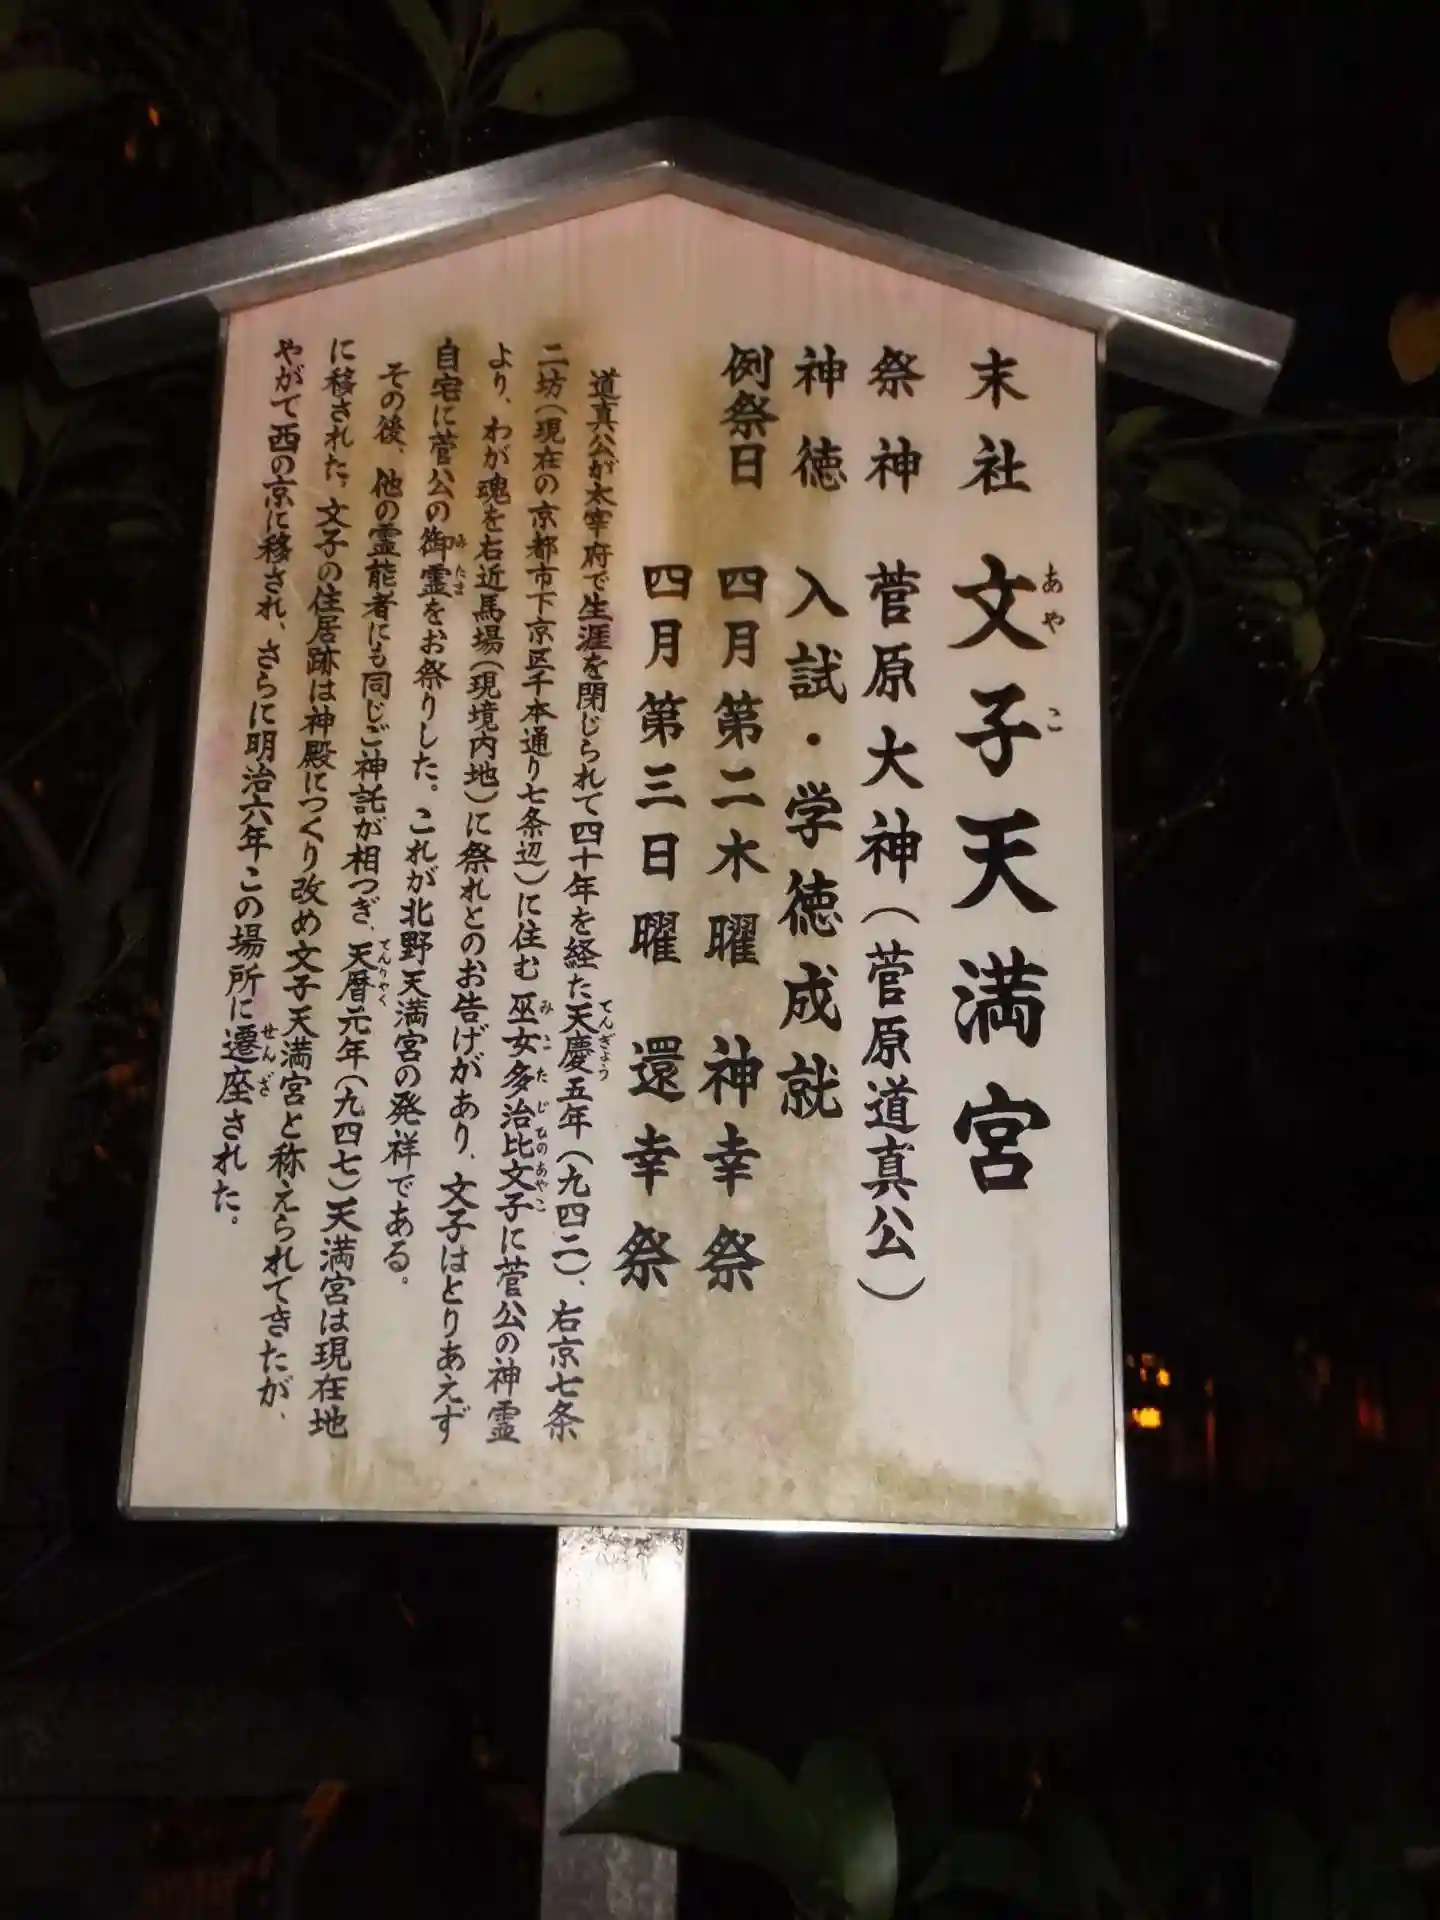 末社 文子天満宮
あやこ
祭神 菅原大神(菅原道真公)
神徳 入試・学徳成就
例祭日 四月第二木曜 神幸祭
四月第三日曜 還幸祭
道真公が太宰府で生涯を閉じられて四十年を経た天慶五年(九四二)、右京七条
てんぎょう
二坊(現在の京都市下京区千本通り七条辺)に住む巫女多治比文子に菅公の神霊
みこたじひのあやこ
より、わが魂を右近馬場(現境内地)に祭れとのお告げがあり、文子はとりあえず
自宅に菅公の御霊をお祭りした。これが北野天満宮の発祥である。
みたま
その後、他の霊能者にも同じご神託が相つぎ、天暦元年(九四七)天満宮は現在地
てんりやく
に移された。文子の住居跡は神殿につくり改め文子天満宮と称えられてきたが、
やがて西の京に移され、さらに明治六年この場所に遷座された。
せんざ